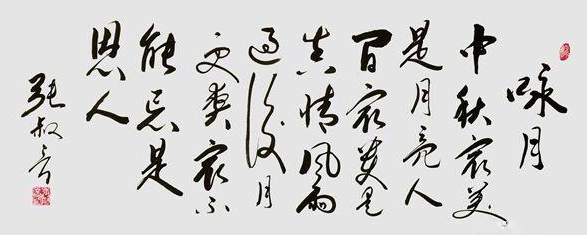 咏月
中秋最美
是月亮人
间最美是
真情风雨
过後月
更美最不
能忘是
恩人
张叔